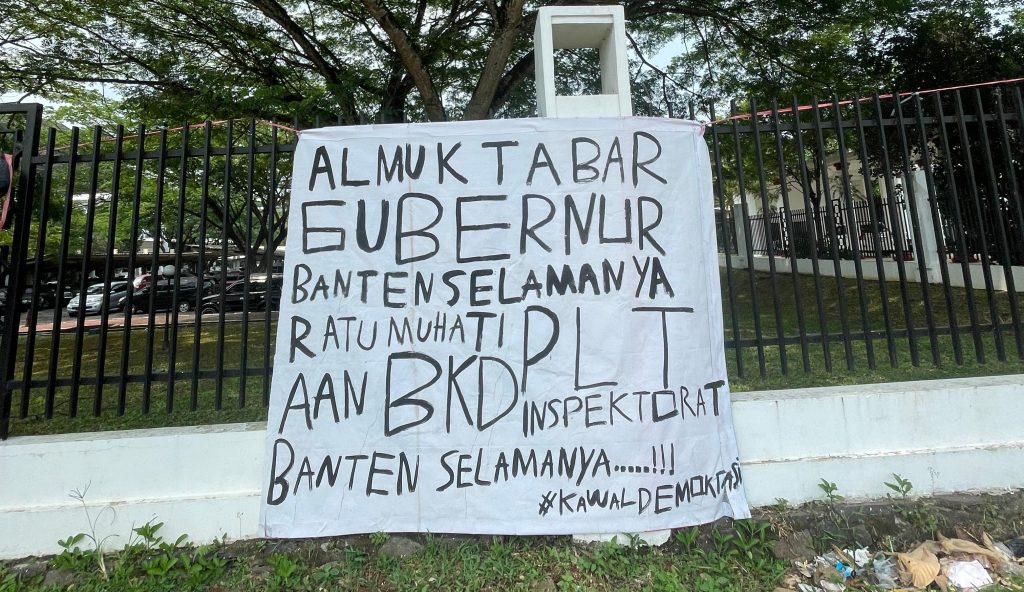 ALMUKTABAR
GUBERNUR
BANTEN SELAMANYA
RATU MUHATI PLT
AAN BKD INSPEKTORAT
BANTEN SELAMANYA.....!!!
#KAWALDEMOKRASi